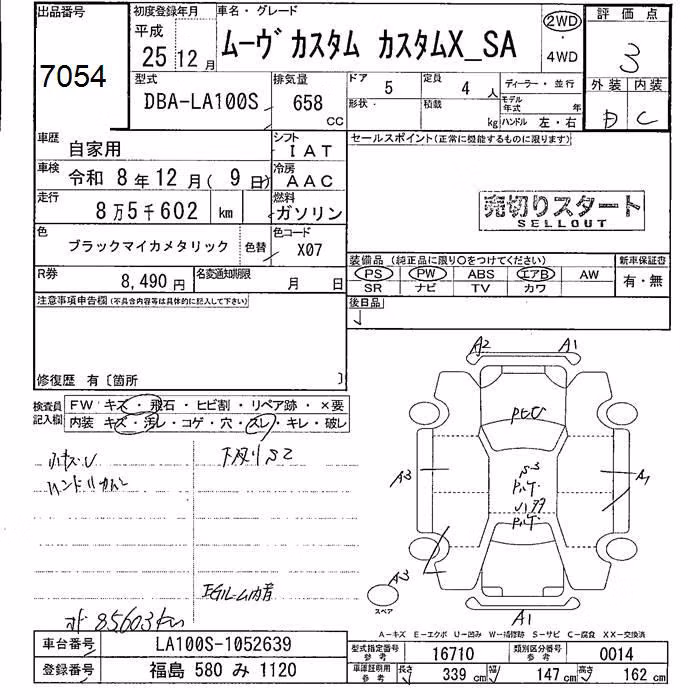 出品番号
7054
初度登録年月
平成
25 12 月
車名・グレード
ムーヴ カスタム カスタムX_SA
2WD
・
4WD
評価点
3
外装 内装
D C
型式
DBA-LA100S
排気量
658
CC
ドア
5
定員
4 人
形状・
積載
kg
ディーラー・並行
モデル年式 年
ハンドル 左・右
車歴
自家用
シフト
IAT
車検
令和 8 年 12 月 ( 9 日)
冷房
AAC
走行
8 万 5 千 602 km
燃料
ガソリン
色
ブラックマイカメタリック
色替
色コード
X07
R券
8,490 円
名変通知期限
月 日
セールスポイント(正常に機能するものに限ります)
売切りスタート
SELLOUT
装備品(純正品に限り○をつけてください)
PS PW ABS エアB AW
SR ナビ TV カワ
新車保証書
有・無
後日品
注意事項申告欄(不具合内容等は具体的に記入して下さい)
修復歴 有〔箇所 〕
検査員記入欄
FW キズ・飛石・ヒビ割・リペア跡・×要
内装 キズ・汚レ・コゲ・穴・スレ・キレ・破レ
下廻りS2
85603km
A2 A1
A3
A1
A3
スペア
A1
A-キズ E-エクボ U-凹み W-補修跡 S-サビ C-腐食 XX-交換済
車台番号
LA100S-1052639
登録番号
福島 580 み 1120
型式指定番号
参考
16710
類別区分番号
参考
0014
車庫証明用
参考
長さ 339 cm
幅 147 cm
高さ 162 cm